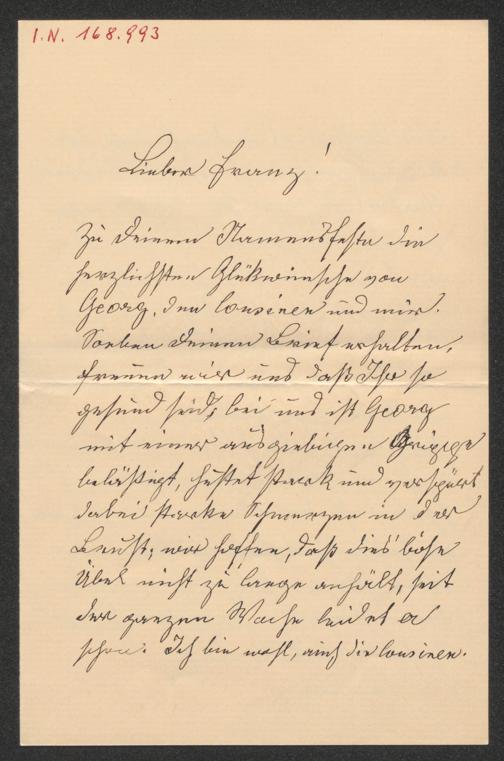 I.N. 168.993
Lieber Franz!
Zu Deinem Namensfeste die
herzlichsten Glükwünsche von
Georg, den Cousinen und mir.
Soeben Deinen Brief erhalten,
freuen wir uns daß Ihr so
gesund seid, bei uns ist Georg
mit einer ausgiebigen Grippe
belästigt, hustet stark und verspürt
dabei starke Schmerzen in der
Brust; wir hoffen, daß dies böse
Übel nicht zu lange anhält, seit
der ganzen Woche leidet er
schon. Ich bin wohl, auch die Cousinen.